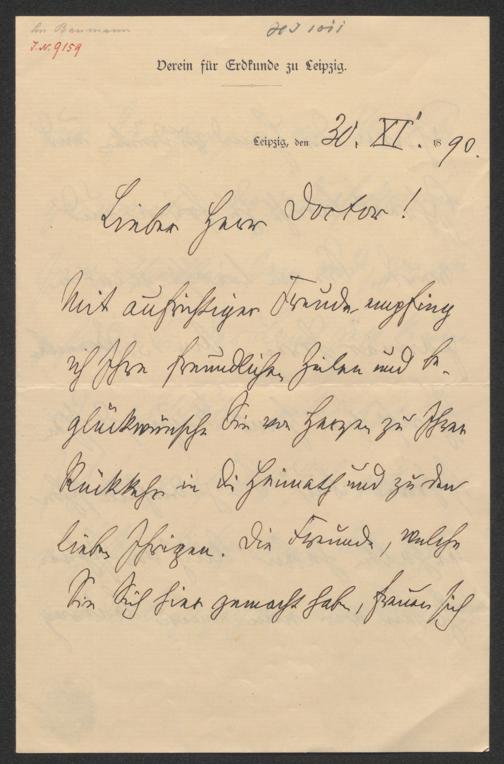 An Baumann
I.N. 9159
Verein für Erdkunde zu Leipzig.
Leipzig, den 30. XI. 1890.
Lieber Herr Doctor!
Mit aufrichtiger Freude empfing
ich Ihre freundlichen Zeilen und be-
glückwünsche Sie von Herzen zu Ihrer
Rückkehr in die Heimath und zu den
lieben Ihrigen. Die Freunde, welche
Sie Sich hier gemacht haben, freuen sich